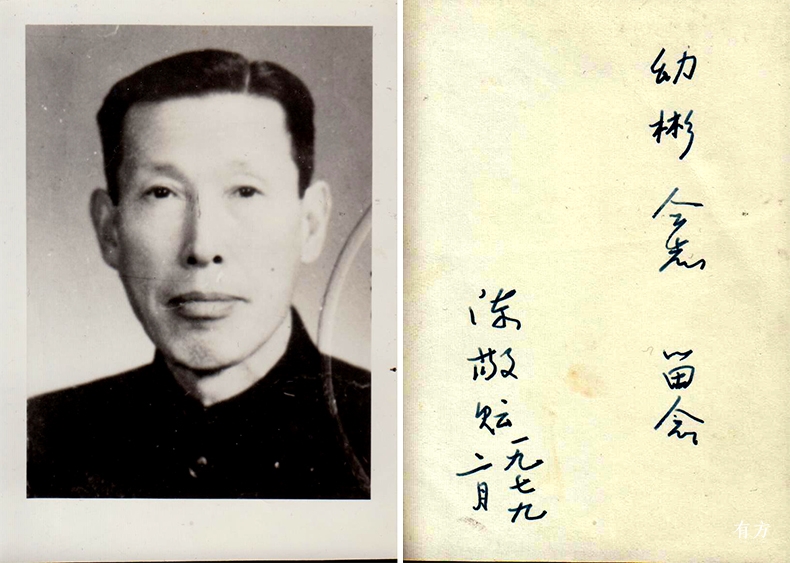 幼彬 仝志 留念
陈敬
一九七九
二月
有方